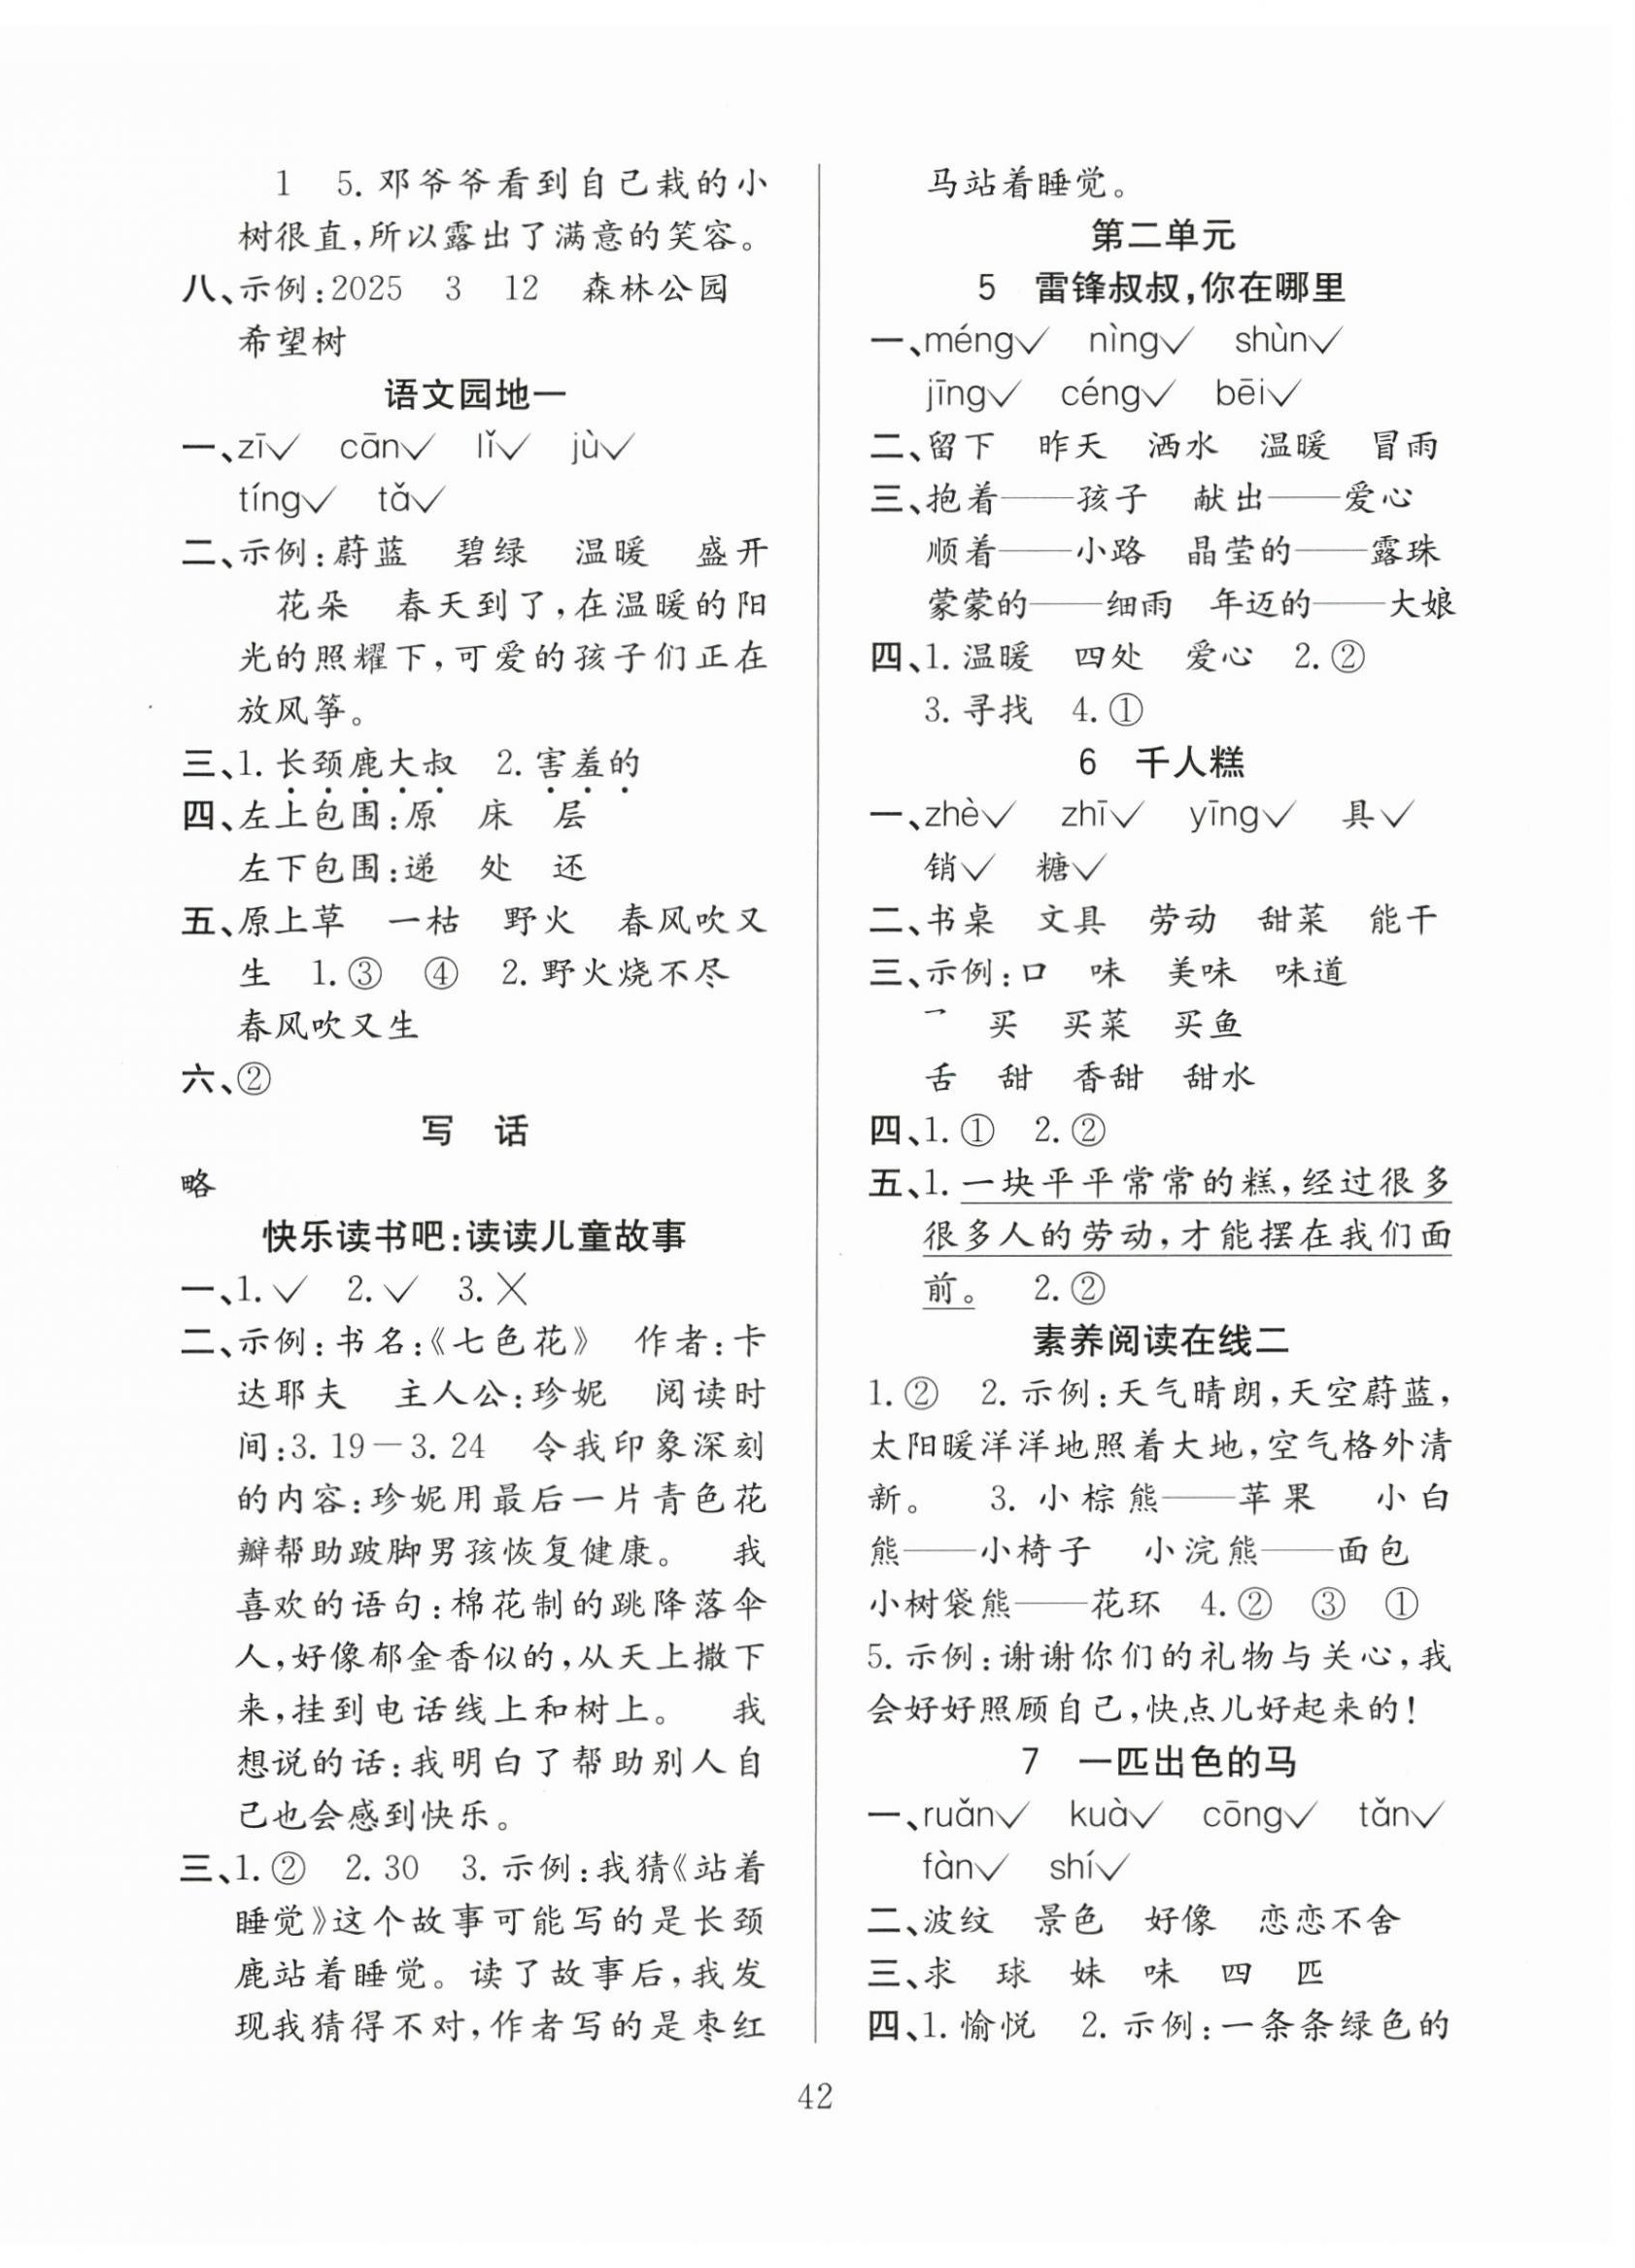 1　5. 邓爷爷看到自己栽的小
树很直,所以露出了满意的笑容。
八、示例:2025　3　12　森林公园
希望树
语文园地一
一、zī✓　cān✓　lǐ✓　jù✓
tíng✓　tǎ✓
二、示例:蔚蓝　碧绿　温暖　盛开
花朵　春天到了,在温暖的阳
光的照耀下,可爱的孩子们正在
放风筝。
三、1. 长颈鹿大叔　2. 害羞的
四、左上包围:原　床　层
左下包围:递　处　还
五、原上草　一枯　野火　春风吹又
生　1.③　④　2. 野火烧不尽
春风吹又生
六、②
写　话
略
快乐读书吧:读读儿童故事
一、1.✓　2.✓　3.╳
二、示例:书名:《七色花》　作者:卡
达耶夫　主人公:珍妮　阅读时
间:3. 19－3. 24　令我印象深刻
的内容:珍妮用最后一片青色花
瓣帮助跛脚男孩恢复健康。　我
喜欢的语句:棉花制的跳降落伞
人,好像郁金香似的,从天上撒下
来,挂到电话线上和树上。　我
想说的话:我明白了帮助别人自
己也会感到快乐。
三、1.②　2. 30　3. 示例:我猜《站着
睡觉》这个故事可能写的是长颈
鹿站着睡觉。读了故事后,我发
现我猜得不对,作者写的是枣红
马站着睡觉。
第二单元
5　雷锋叔叔,你在哪里
一、méng✓　nìng✓　shùn✓
jīng✓　céng✓　bēi✓
二、留下　昨天　洒水　温暖　冒雨
三、抱着——孩子　献出——爱心
顺着——小路　晶莹的——露珠
蒙蒙的——细雨　年迈的——大娘
四、1. 温暖　四处　爱心　2.②
3. 寻找　4.①
6　千人糕
一、zhè✓　zhī✓　yīng✓　具✓
销✓　糖✓
二、书桌　文具　劳动　甜菜　能干
三、示例:口　味　美味　味道
乛　买　买菜　买鱼
舌　甜　香甜　甜水
四、1.①　2.②
五、1. 一块平平常常的糕,经过很多
很多人的劳动,才能摆在我们面
前。　2.②
素养阅读在线二
1.②　2. 示例:天气晴朗,天空蔚蓝,
太阳暖洋洋地照着大地,空气格外清
新。　3. 小棕熊——苹果　小白
熊——小椅子　小浣熊——面包
小树袋熊——花环　4.②　③　①
5. 示例:谢谢你们的礼物与关心,我
会好好照顾自己,快点儿好起来的!
7　一匹出色的马
一、ruǎn✓　kuà✓　cōng✓　tǎn✓
fàn✓　shí✓
二、波纹　景色　好像　恋恋不舍
三、求　球　妹　味　四　匹
四、1. 愉悦　2. 示例:一条条绿色的
42